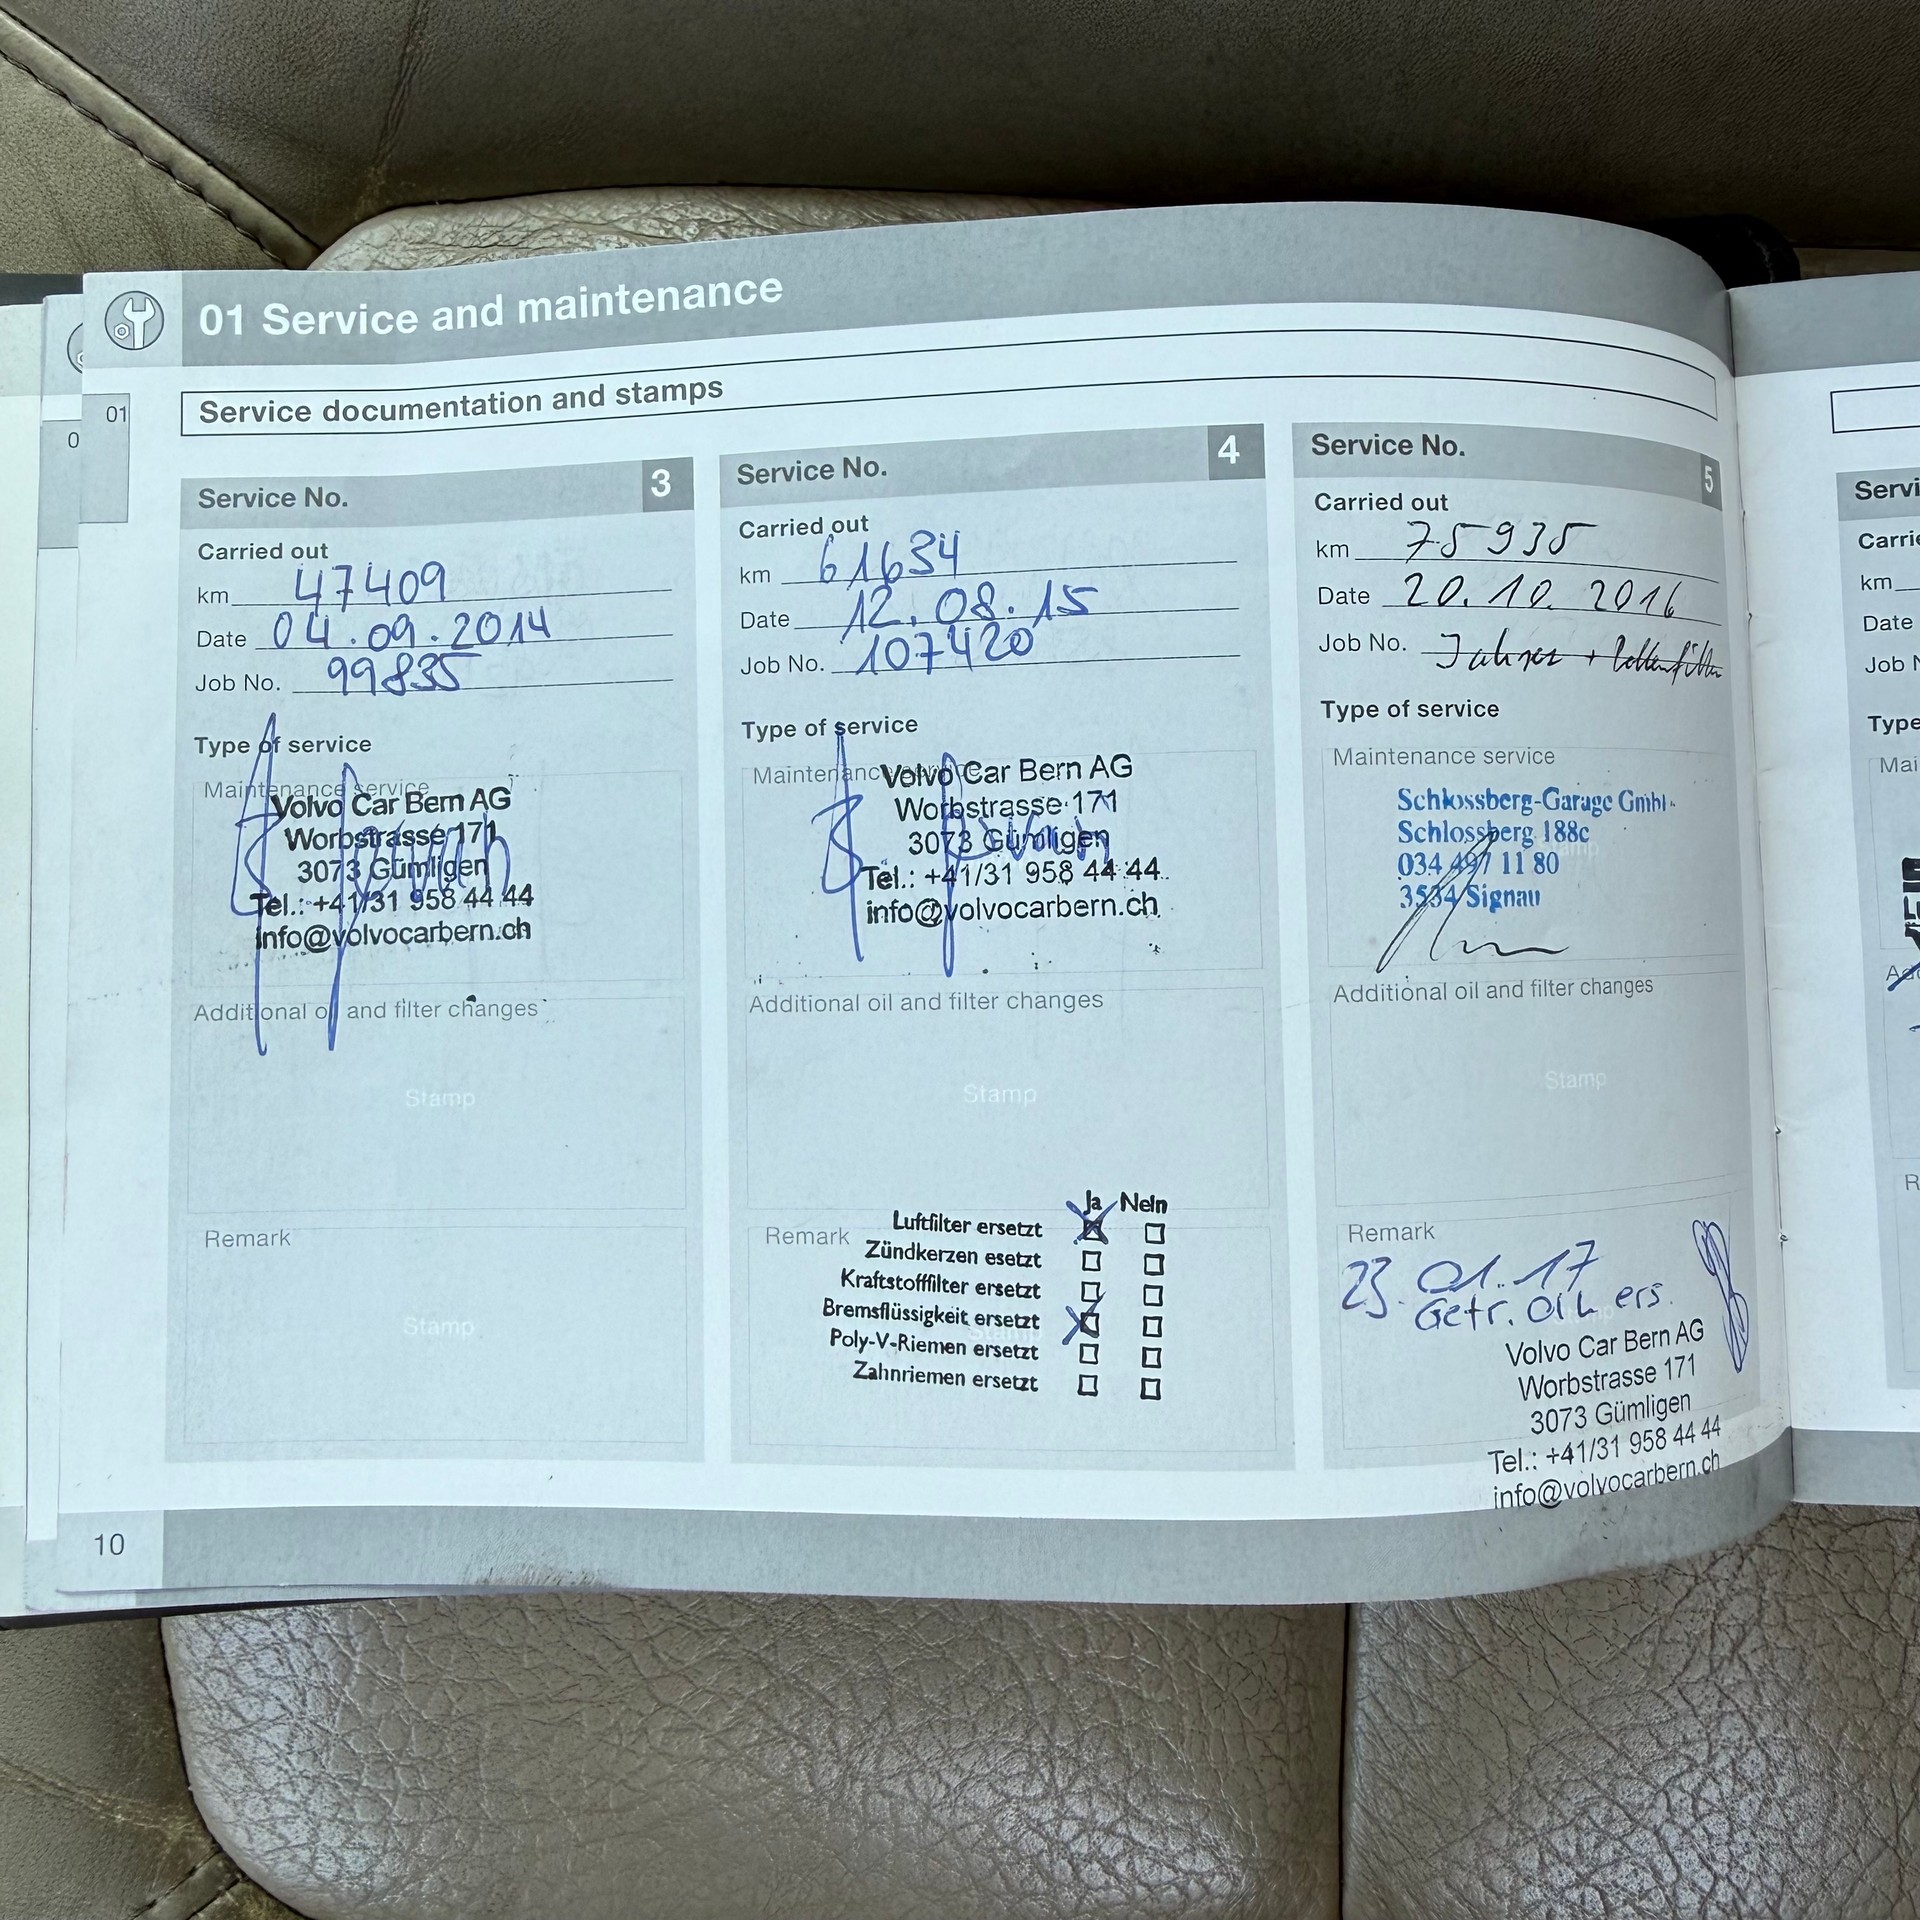 01 Service and maintenance
01
0
Service documentation and stamps
Service No. 3
Carried out
km 47409
Date 04.09.2014
Job No. 99835
Type of service
Maintenance service
Volvo Car Bern AG
Worbstrasse 171
3073 Gümligen
Tel.: +41/31 958 44 44
info@volvocarbern.ch
Additional oil and filter changes
Stamp
Remark
Stamp
Service No. 4
Carried out
km 61634
Date 12.08.15
Job No. 107420
Type of service
Maintenance service
Volvo Car Bern AG
Worbstrasse 171
3073 Gümligen
Tel.: +41/31 958 44 44
info@volvocarbern.ch
Additional oil and filter changes
Stamp
Remark
Ja Nein
Luftfilter ersetzt
Zündkerzen esetzt
Kraftstofffilter ersetzt
Bremsflüssigkeit ersetzt
Stamp
Poly-V-Riemen ersetzt
Zahnriemen ersetzt
Service No. 5
Carried out
km 75935
Date 20.10.2016
Job No. +
Type of service
Maintenance service
Schlossberg-Garage GmbH
Schlossberg 188c
Stamp
034 497 11 80
3534 Signau
Additional oil and filter changes
Stamp
Remark
23.01.17
Getr. Öl ers.
Stamp
Volvo Car Bern AG
Worbstrasse 171
3073 Gümligen
Tel.: +41/31 958 44 44
info@volvocarbern.ch
10
Servi
Carrie
km
Date
Job N
Type
Mai
Ad
R